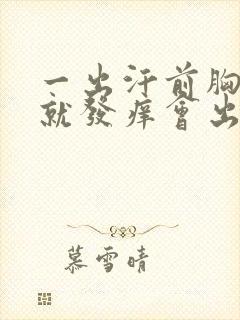 一出汗前胸
就發痒會出
慕雪晴